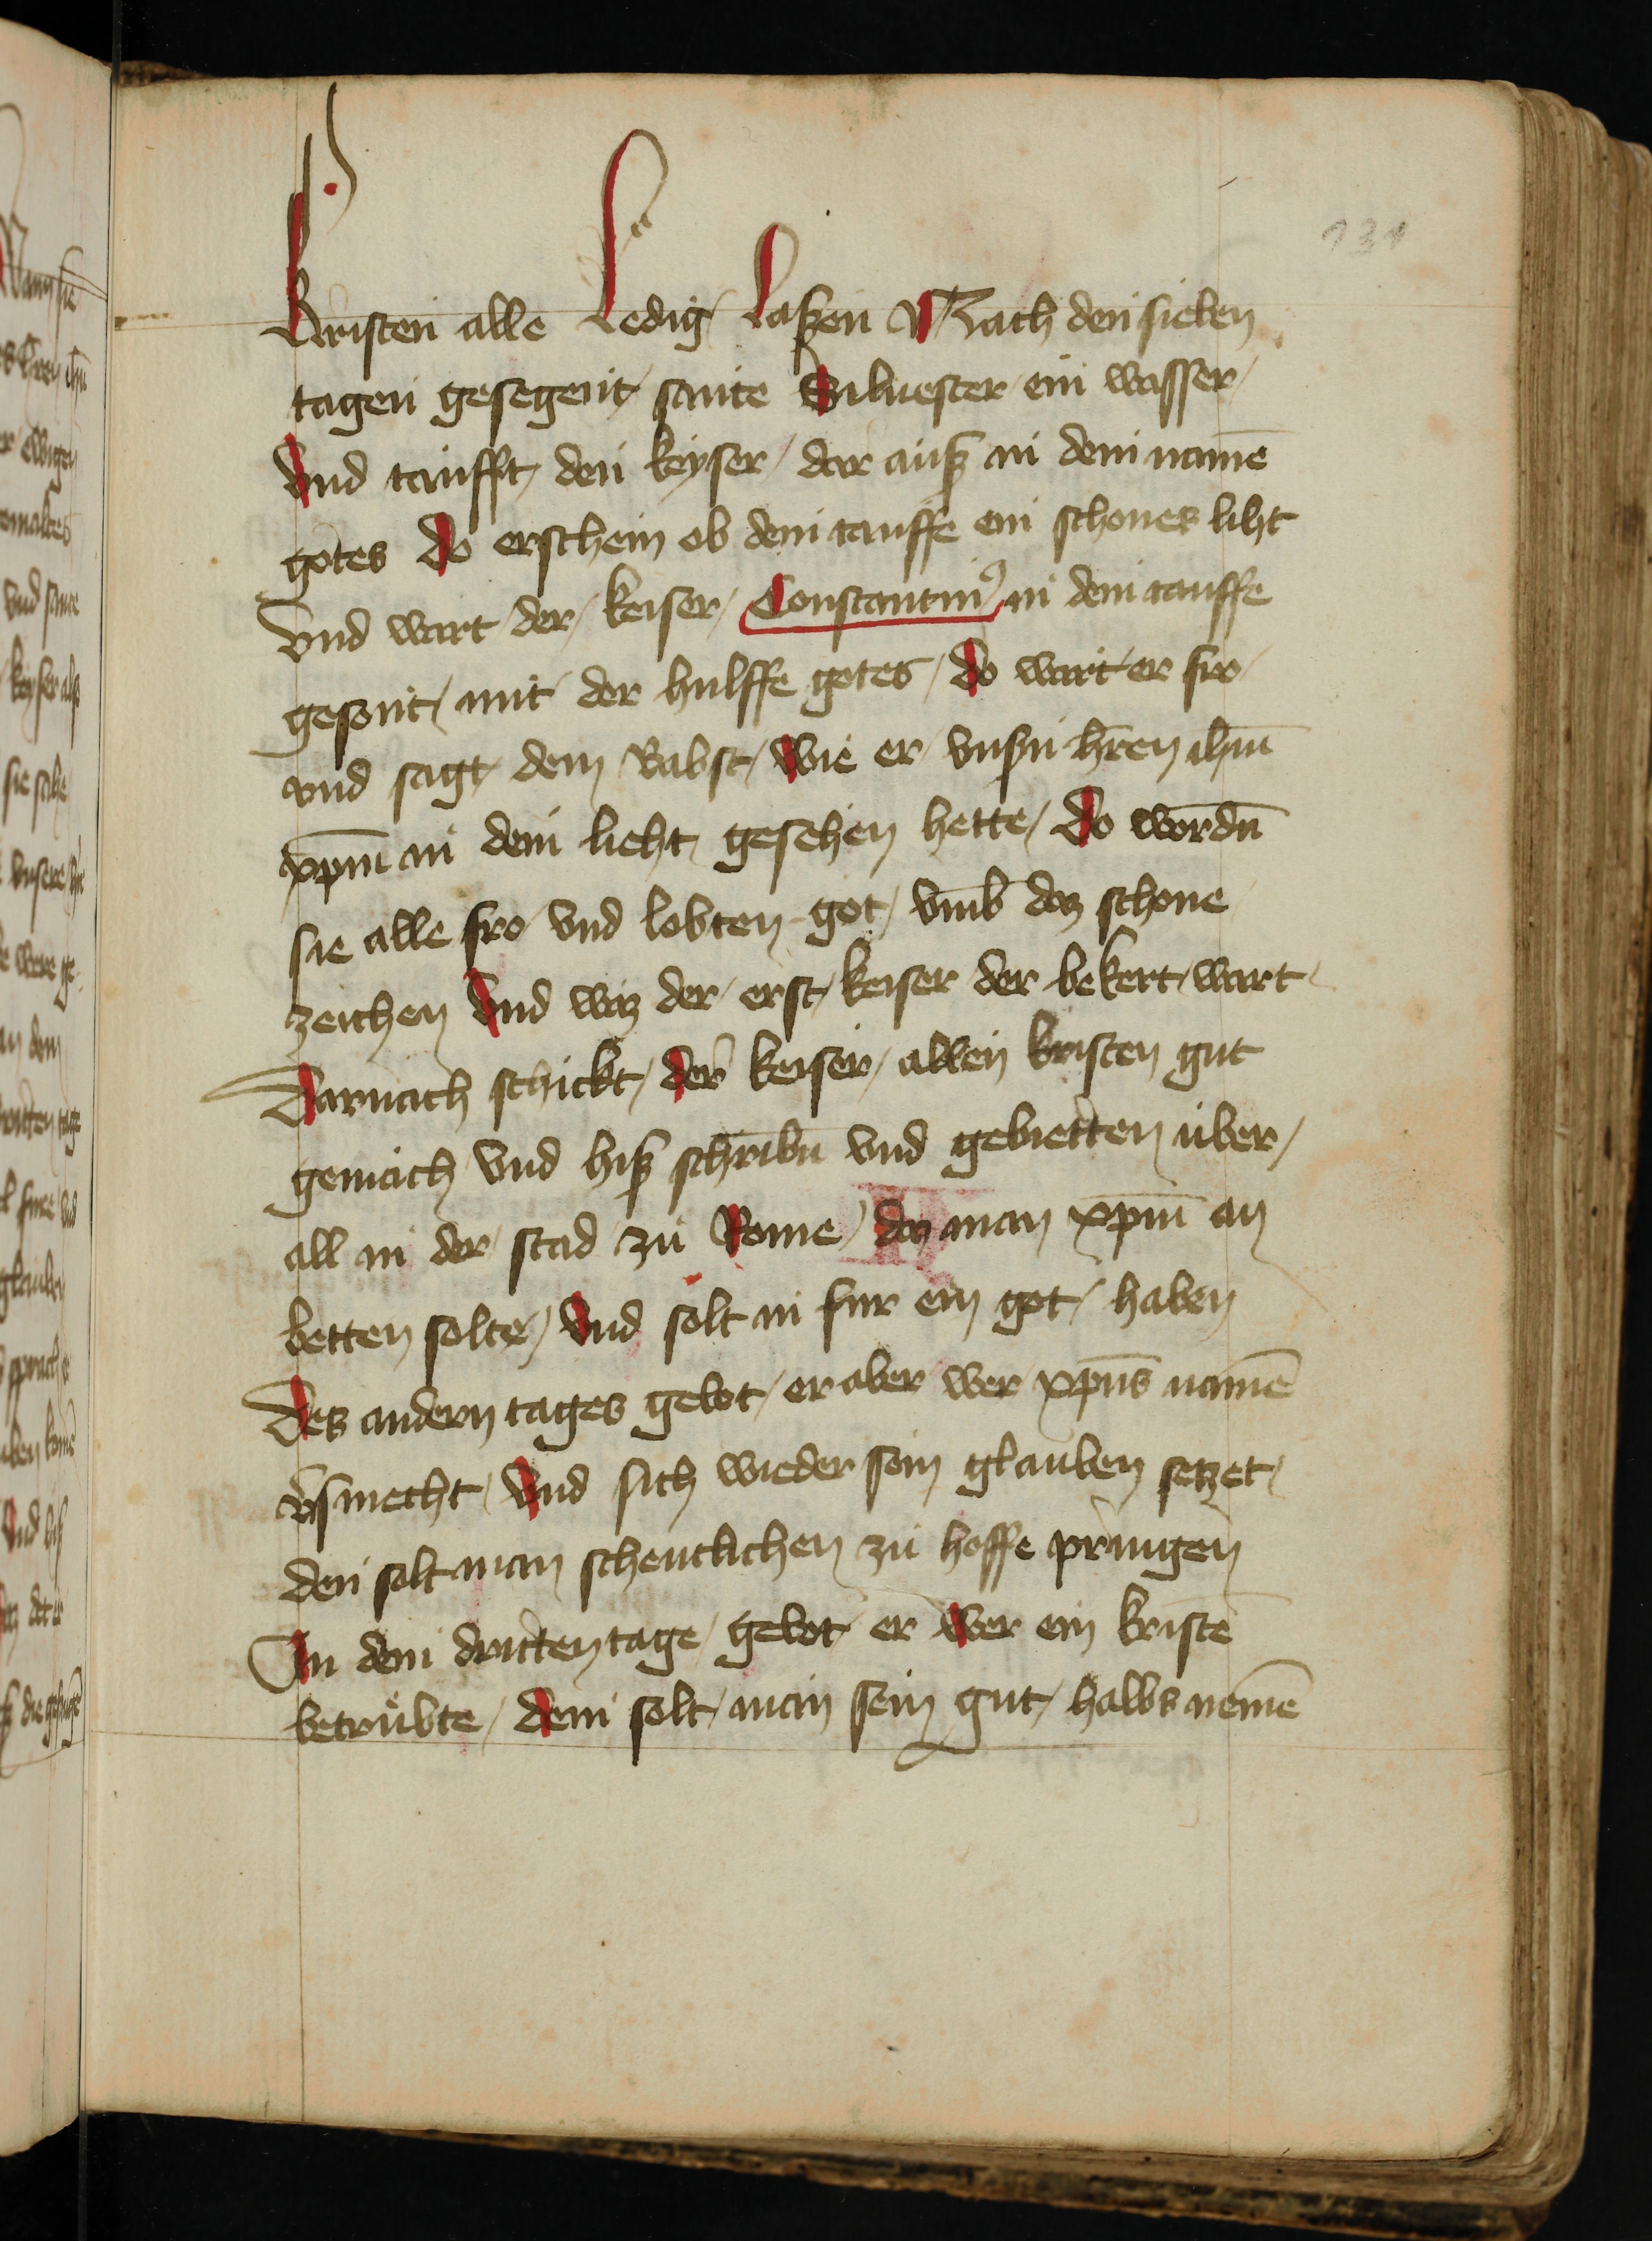 131
Kristen alle Ledig Laßen Nach den sieben
tagen gesegent sante Siluester ein wasser
Vnd taufft den keyser dar auß in dem namē
gotes Do erschein ob dem tauffe ein schones liht
Vnd wart der keiser Constantinꝰ in dem tauffe
gesont mit der hulffe gotes Do wart er fro
vnd sagt dem Babst Wie er vnßn hr̄en ihm̄
xpm̄ in dem lieht gesehen hette Do wordn̄
sie alle fro vnd lobten got vmb daz schone
zeichen Vnd waz der erst keiser der bekert wart
Darnach schickt der keiser allen kristen gut
gemach vnd hiß schribn̄ vnd gebietten uber
all in der stad zu Rome daz man xpm̄ an
betten solte Vnd solt in fur ein got haben
Des andern tages gebot er aber wer xpūs namē
v̄smecht Vnd sich wieder sein glauben setzet
den solt man schentlichen zu hoffe pringen
In dem dritten tage gebot er Wer ein kristē
betrubte dem solt man sein gut halbs nemē